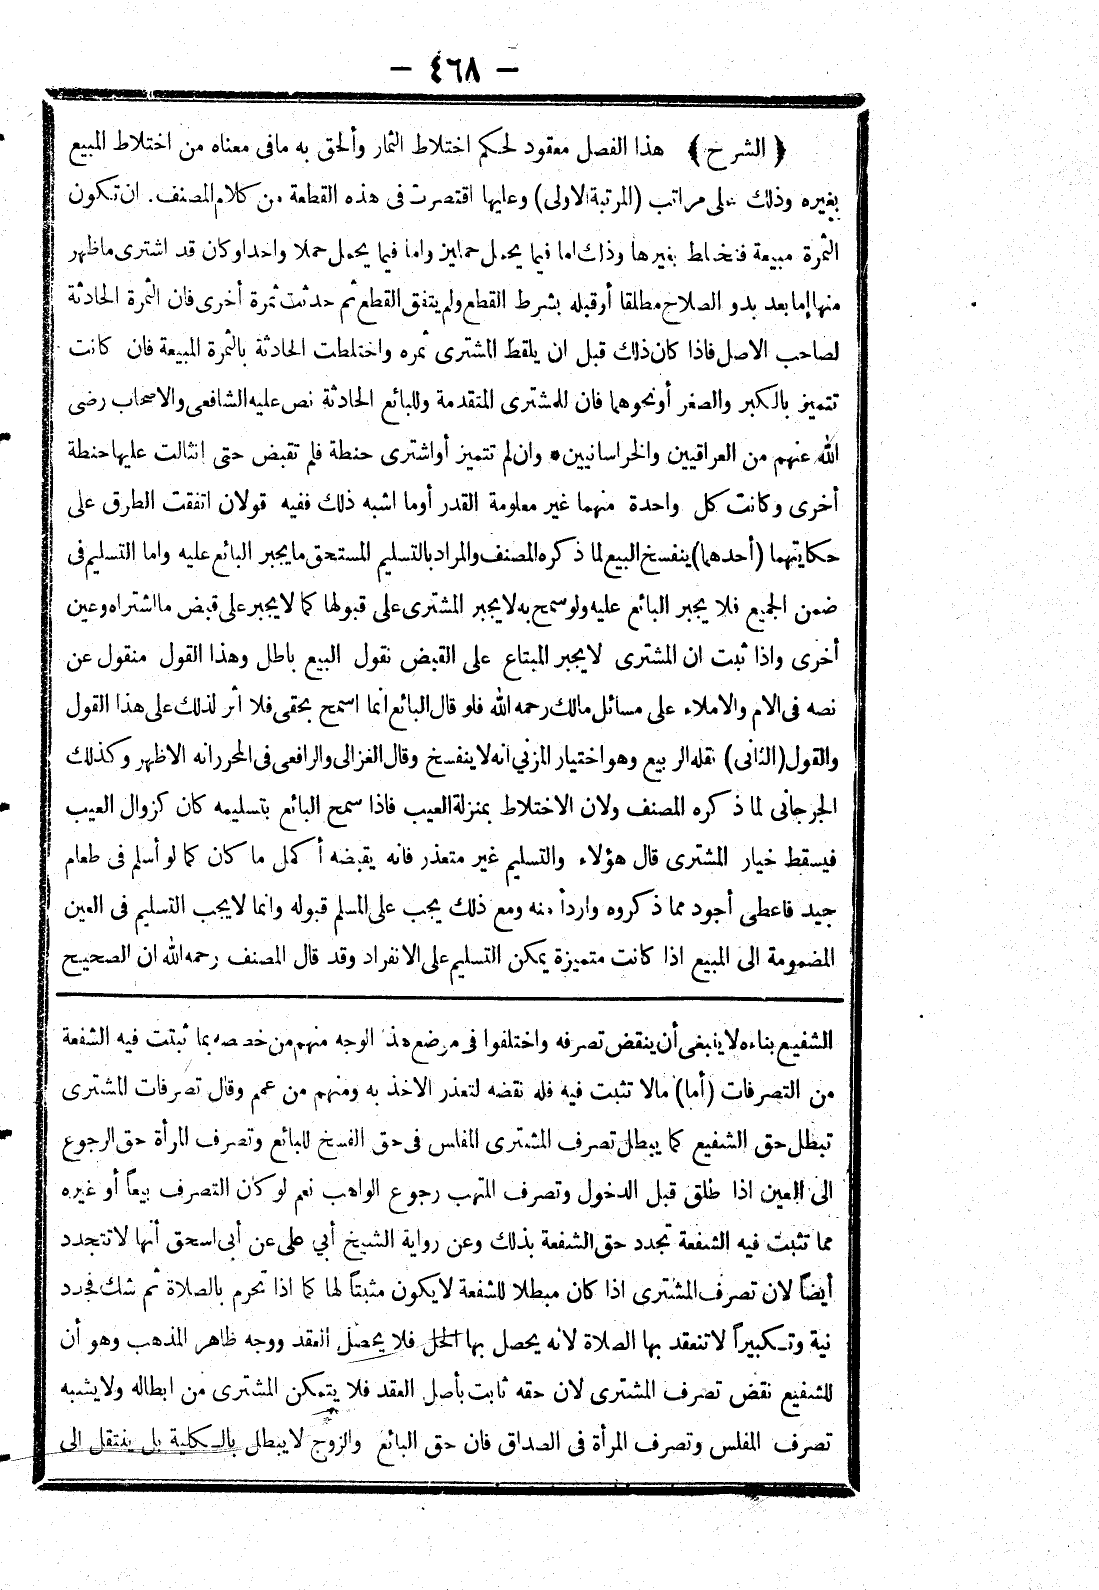 — ٤٦٨ —
﴿ الشرح ﴾ هذا الفصل معقود لحكم اختلاط الثمار وألحق به مافى معناه من اختلاط المبيع
بغيره وذلك على مراتب (المرتبة الاولى) وعليها اقتصرت فى هذه القطعة من كلام المصنف. ان تكون
الثمرة مبيعة فتختلط بغيرها وذلك اما فيما يحمل حملين واما فيما يحمل حملا واحدا وكان قد اشترى ماظهر
منها إما بعد بدو الصلاح مطلقا أوقبله بشرط القطع ولم يتفق القطع ثم حدثت ثمرة أخرى فان الثمرة الحادثة
لصاحب الاصل فاذا كان ذلك قبل ان يلقط المشترى ثمره واختلطت الحادثة بالثمرة المبيعة فان كانت
تتميز بالكبر والصغر أونحوهما فان للمشترى المتقدمة وللبائع الحادثة نص عليه الشافعى والاصحاب رضى
الله عنهم من العراقيين والخراسانيين* وان لم تتميز أواشترى حنطة فلم تقبض حتى انثالت عليها حنطة
أخرى وكانت كل واحدة منهما غير معلومة القدر أوما اشبه ذلك ففيه قولان اتفقت الطرق على
حكايتهما (أحدهما) ينفسخ البيع لما ذكره المصنف والمراد بالتسليم المستحق مايجبر البائع عليه واما التسليم فى
ضمن الجميع فلا يجبر البائع عليه ولو سمح به لايجبر المشترى على قبولها كما لايجبر على قبض مااشتراه وعين
أخرى واذا ثبت ان المشترى لايجبر المبتاع على القبض نقول البيع باطل وهذا القول منقول عن
نصه فى الام والاملاء على مسائل مالك رحمه الله فلو قال البائع انما اسمح بحقى فلا أثر لذلك على هذا القول
والقول (الثانى) نقله الربيع وهو اختيار المزني انه لاينفسخ وقال الغزالى والرافعى فى المحرر انه الاظهر وكذلك
الجرجانى لما ذكره المصنف ولان الاختلاط بمنزلة العيب فاذا سمح البائع بتسليمه كان كزوال العيب
فيسقط خيار المشترى قال هؤلاء والتسليم غير متعذر فانه يقبضه أكمل ما كان كما لو أسلم فى طعام
جيد فاعطى أجود مما ذكروه واردا منه ومع ذلك يجب على المسلم قبوله وانما لايجب التسليم فى العين
المضمومة الى المبيع اذا كانت متميزة يمكن التسليم على الانفراد وقد قال المصنف رحمه الله ان الصحيح
الشفيع بناءه لاينبغى أن ينقض تصرفه واختلفوا فى موضع هذا الوجه منهم من خصصه بما ثبتت فيه الشفعة
من التصرفات (أما) مالا تثبت فيه فله نقضه لتعذر الاخذ به ومنهم من عمم وقال تصرفات المشترى
تبطل حق الشفيع كما يبطل تصرف المشترى المفلس فى حق الفسخ للبائع وتصرف المرأة حق الرجوع
الى العين اذا طلق قبل الدخول وتصرف المتهب رجوع الواهب نعم لو كان التصرف بيعاً أو غيره
مما تثبت فيه الشفعة تجدد حق الشفعة بذلك وعن رواية الشيخ أبي على عن أبى اسحق أنها لاتتجدد
أيضاً لان تصرف المشترى اذا كان مبطلا للشفعة لايكون مثبتاً لها كما اذا تحرم بالصلاة ثم شك فجدد
نية وتكبيراً لاتنعقد بها الصلاة لانه يحصل بها الحل فلا يحصل العقد ووجه ظاهر المذهب وهو أن
للشفيع نقض تصرف المشترى لان حقه ثابت بأصل العقد فلا يتمكن المشترى من ابطاله ولايشبه
تصرف المفلس وتصرف المرأة فى الصداق فان حق البائع والزوج لايبطل بالكلية بل ينتقل الى